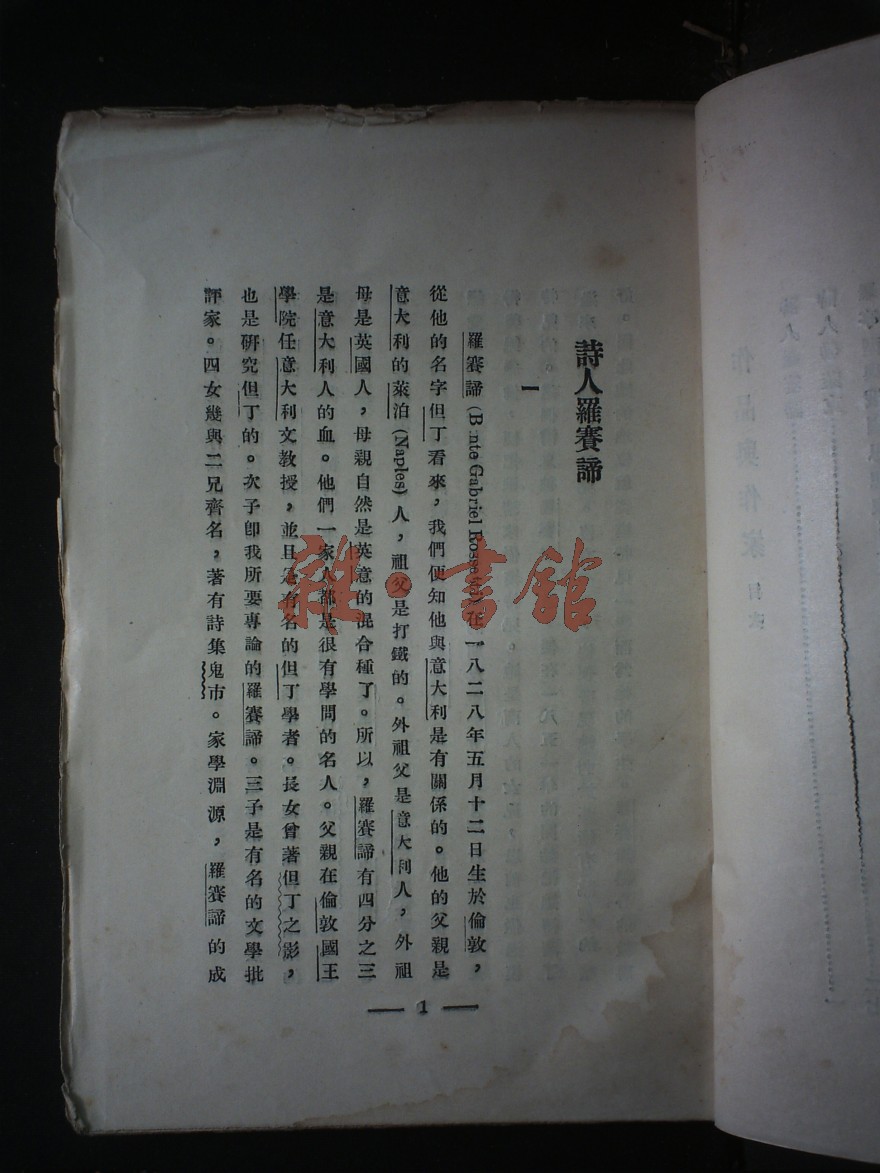 詩人羅賽諦
一
羅賽諦 (Dante Gabriel Rossetti) 在一八二八年五月十二日生於倫敦，
從他的名字但丁看來，我們便知他與意大利是有關係的。他的父親是
意大利的萊泊 (Naples) 人，祖父是打鐵的。外祖父是意大利人，外祖
母是英國人，母親自然是英意的混合種了。所以，羅賽諦有四分之三
是意大利人的血。他們一家人都是很有學問的名人。父親在倫敦國王
學院任意大利文教授，並且是有名的但丁學者。長女曾著但丁之影，
也是研究但丁的。次子卽我所要專論的羅賽諦。三子是有名的文學批
評家。四女幾與二兄齊名，著有詩集鬼市。家學淵源，羅賽諦的成
— 1 —
雜·書館
作品與作家 目次